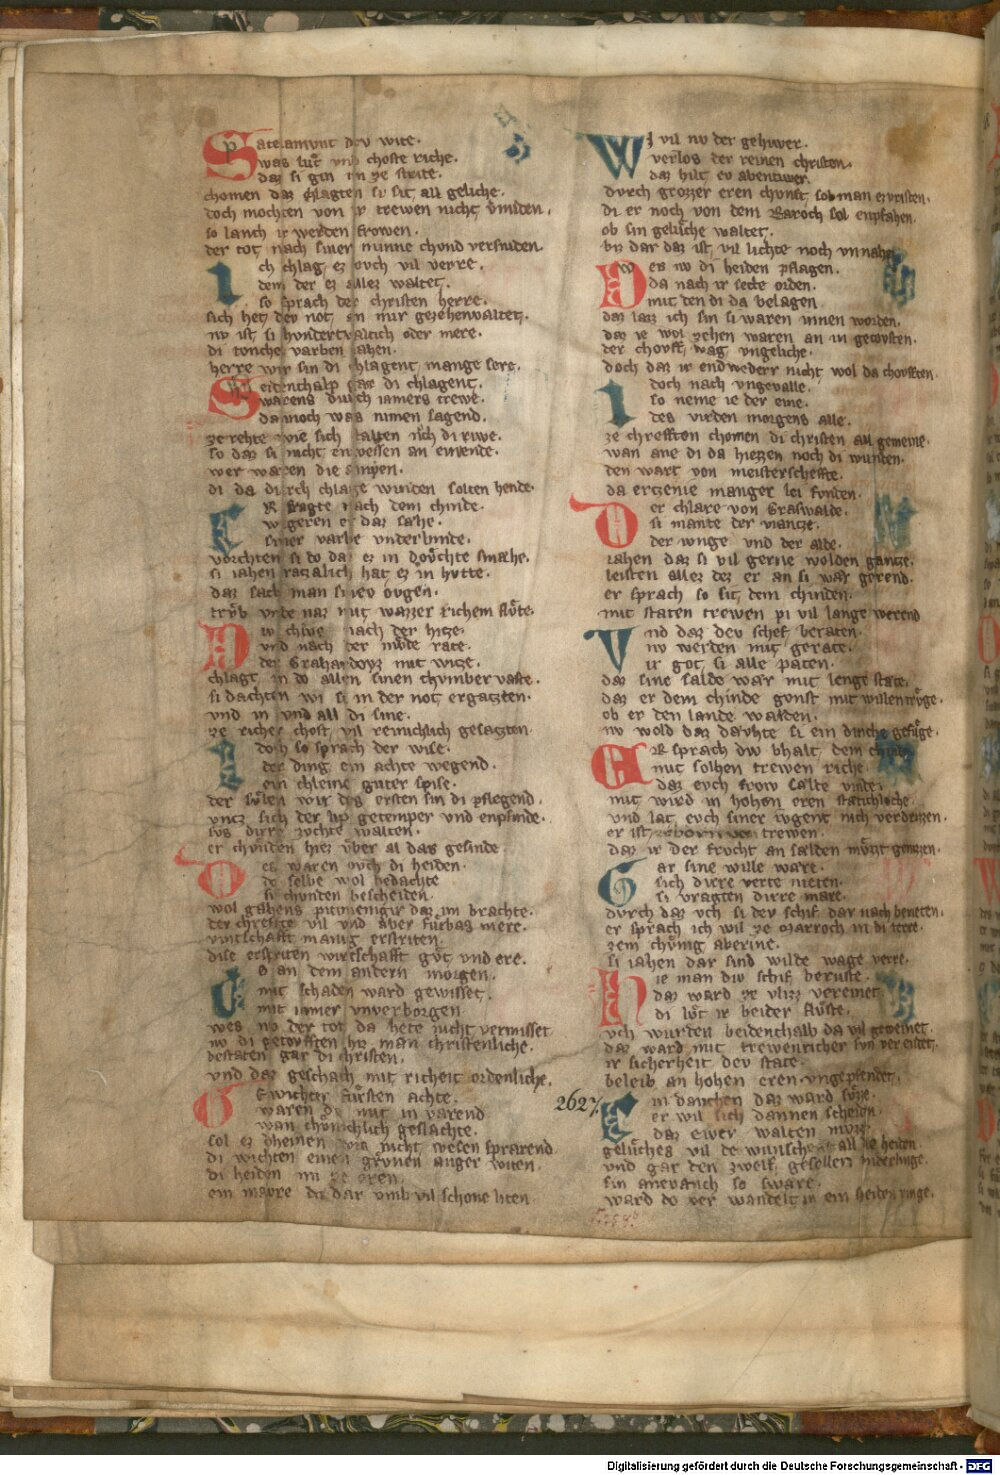 Patelamunt dev wite.
was lut vnd choste riche.
daz si gin in ze strite.
chomen daz chlagten si sit all geliche.
doch mochten von ir trewen nicht vmiden.
so lanch ir werden frowen.
der tot nach siner minne chund versniden.
Ich chlag ez ouch vil verre.
dem der ez allez waltet.
so sprach der christen herre.
sich het dev not an mir gezehenvaltet.
nv ist si hvndertvaltich oder mere.
di tunchel varben iahen.
herre wir sin di chlagent mange sere.
Seidenthalp gar di chlagent.
warens durch iamers trewe.
da noch was nimen sagend.
ze rehte wie sich stalten nach di riwe.
so daz si nicht en wessen an eintende.
wer waren die
di da durch chlage winden solten hende.
Er fragte nach dem chinde.
w geren er daz sahe.
siner varbe vnderbinde.
vorchten si do daz ez in dovchte smahe.
si iahen ratzalich hat ez in hvtte.
daz sach man si iev ovgen.
trvb vnde naz mit wazzer richem flote.
Div chlve nach der hitze.
vnd nach der mvde rate.
der Grahardoyz mit witze.
chlagt in do allen sinen chvmber vaste.
si dachten wi si in der not ergatzten.
vnd in vnd all di sine.
ze richer chost vil reinichlich gesatzten.
Edoch so sprach der wise.
der ding ein achte wegend.
ein chleine guter spise.
der sulen wir des ersten sin di pflegend.
vntz sich der lip getemper vnd enpfinde.
svs dirre zvchte walten.
er chvnden hiez vber al das gesinde.
Do ez waren ovch di heiden.
do selbe wol bedachte
si chvnden bescheiden.
wol gahens pitmenigir daz im brachte.
der chreffte vil vnd aber furbas mere.
vintschafft manig erstriten.
dise erstriten wirtschafft gut vnd ere.
Do an dem andern morgen.
mit schaden ward gewisset.
mit iamer vnverborgen
wes no der tot da hete nicht vermisset
nv di getovfften hiz man christenliche.
bestaten gar di christen.
vnd daz geschach mit richeit ordenliche.
Gewichter fursten achte.
waren do mit in varend
wan chvnichlich geslachte.
sol ez dheinen wis nicht wesen sparend
di wichten einen grvnen anger witen.
di heiden im ze eren.
ein mavre dit dar vmb vil schone liten.
Wi vil nv der gehiwer.
verlos der reinen christen.
daz hilt ev abentiwer.
durch grozzer eren chvnst sol man ez vristen.
di er noch von dem Baroch sol enpfahen.
ob sin geliche waltet.
bi dar daz ist vil lichte noch vnnahen
Des nv di heiden pflagen.
da nach ir secte orden.
mit den di da belagen
daz laz ich sin si waren innen worden.
daz ie wol zehen waren an in getovften.
der chovft wag vngeliche.
doch daz ir endwederr nicht wol da chovften.
Idoch nach vngevalle.
so neme ie der eine.
des virden morgens alle.
ze chrefften chomen di christen all gemeine.
wan ane di da hiezzen noch di wunden.
den wart von meisterscheffte.
da ertzenie manger lei funden.
Der chlare von Graswalde.
si mante der viantze.
der wige vnd der alde.
iahen daz si vil gerne wolden gantze.
leisten allez dez er an si war gerend.
er sprach so sit dem chinden.
mit staten trewen pi vil lange werend
Vnd daz dev schef beraten.
nv werden mit gerate.
ir got si alle paten.
daz sine salde war mit lenge state.
daz er dem chinde gvnst mit willen trvge.
ob er den lande walden.
nv wold daz davhte si ein dinche gefuge.
Er sprach div bhalt dem chinde
mit solhen trewen riche
daz euch frow salte vinde
mit wird in hohen eren statichliche.
vnd lat euch siner iugent nich verdrizzen.
er ist geborn von trewen.
daz ir der frucht an salden muzzt geniezzen.
Gar sine wille ware.
sich dirre verte nieten.
si vragten dirre mare.
durch daz vch si dev schif dar nach beneten.
er sprach ich wil ze Marroch in di terre.
zem chvnig aberine.
si iahen dar sind wilde wage verre.
Hie man div schif beruste.
daz ward ze vlizz vereinet
di lut ir beider fluste.
vch wurden beidenthalb da vil gemeinet.
daz ward mit trewenricher svn vereistet.
ir sicherheit dev state.
beleib an hohen eren vngepfendet.
2627.
Ein danchen daz ward suzze.
er wil sich dannen scheiden.
daz ewer walten muz
geluches vil de wunsche all die heiden.
vnd gar den zwelf gesellen sunderlinge.
sin anevanch so sware.
ward do ver wandelt in ein heiden ringe.
Digitalisierung gefördert durch die Deutsche Forschungsgemeinschaft - DFG